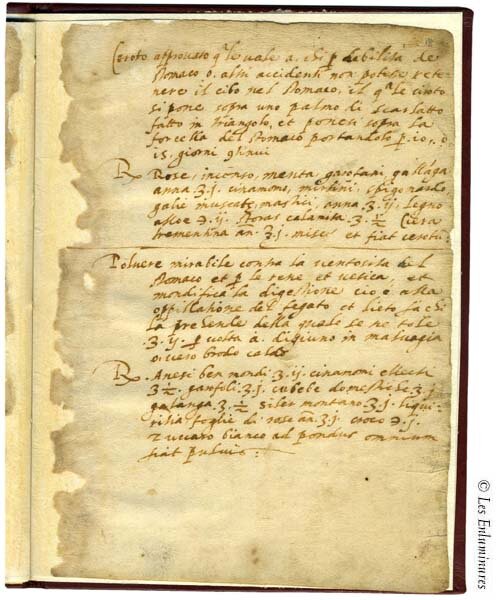 Ceroto approuato q'le uale a. chi p debilita de
stomaco o. altri accidenti non potesse rete-
nere il cibo nel stomaco, il q'le ceroto
si pone sopra uno palmo di scarlatto
fatto in triangolo, et ponesi sopra la
forcella del stomaco portandolo p. 10, o
15, giorni
Rose, incenso, menta, garofani, gallāga
anna ʒ.j. cinamomo, mirtini, spigonardo,
galie muscate, mastici, anna ʒ.ij. legno
aloe ℈.ij. storax calamita ʒ.½ Ciera
trementina an. ʒ.j. misce et fiat cerotū.
Poluere mirabile contra la uentosita del
stomaco et p le rene et uesica, et
mondifica la digestione cio è alla
oppillatione del fegato et lieto fa chi
la prende della quale se ne tole
ʒ.ij. p uolta a. digiuno in maluagia
ouero brodo caldo
Anesi ben mondi ʒ.ij. cinamomi electi
ʒ ½. garofoli ʒ.j. cubebe domestiche ʒ.j
galanga ʒ.½ siler montano ʒ.j. liqui-
ritia foglie di rose an. ʒ.j. croco ℈.j.
Zuccaro bianco ad pondus omnium
fiat puluis :
© Les Enluminures